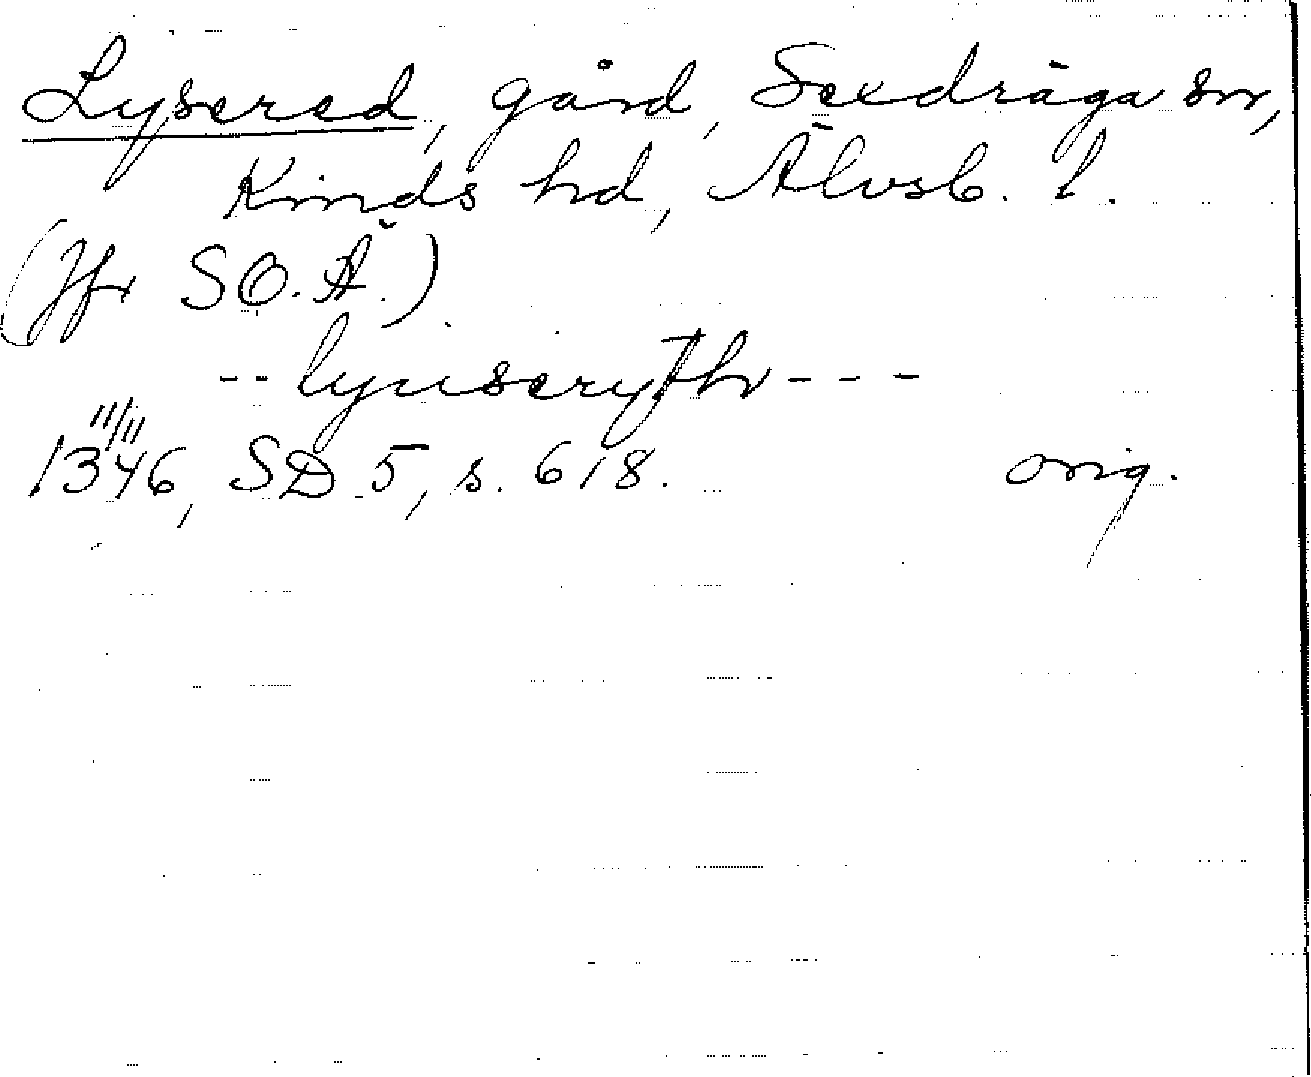 Lysered, gård, Sexdräga sn,
Kinds hd, Älvsb. l.
(Jfr SO.Ä.)
-- lyuseryth ---
11/11
1346, SD 5, s. 618. orig.